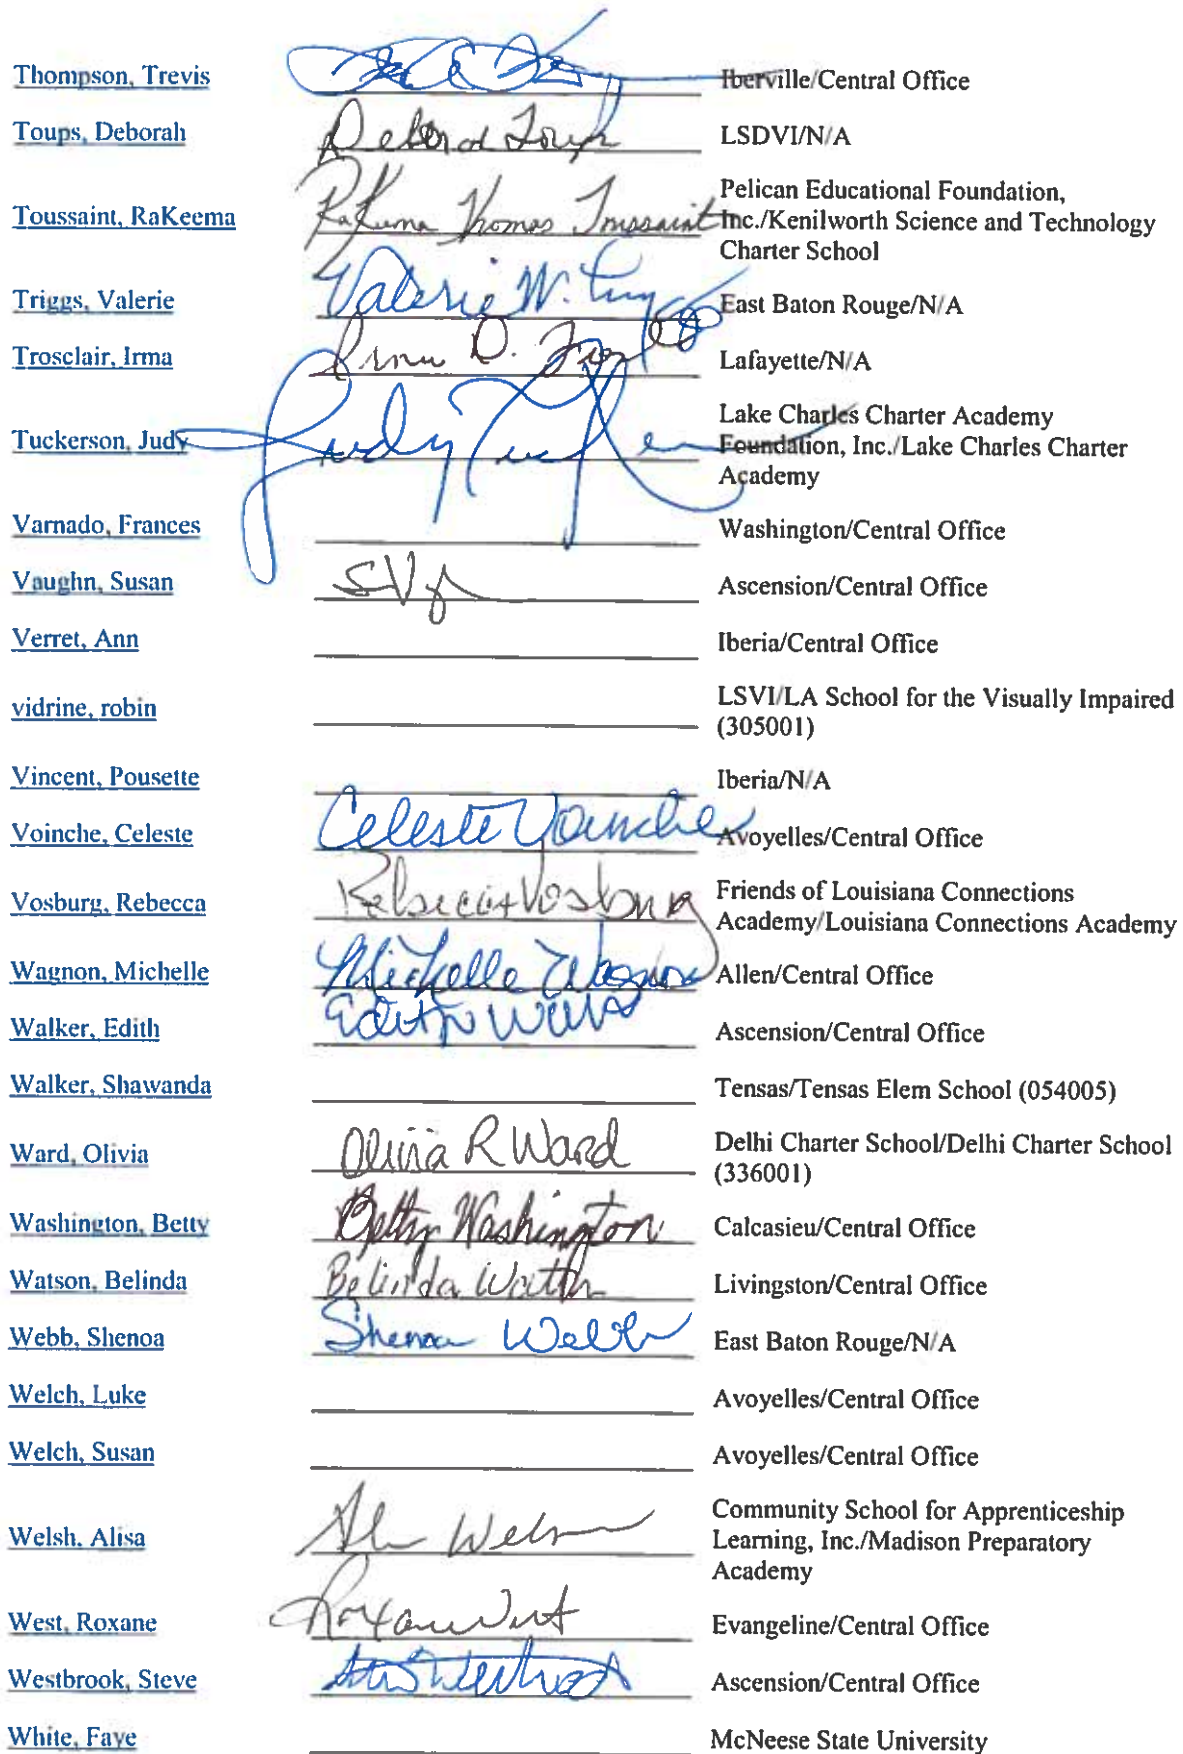 Thompson, Trevis Iberville/Central Office
Toups, Deborah Deborah Toups LSDVI/N/A
Pelican Educational Foundation,
Toussaint, RaKeema RaKeema Thomas Toussaint Inc./Kenilworth Science and Technology
Charter School
Triggs, Valerie Valerie W. East Baton Rouge/N/A
Trosclair, Irma Irma D. Lafayette/N/A
Lake Charles Charter Academy
Tuckerson, Judy Judy Foundation, Inc./Lake Charles Charter
Academy
Varnado, Frances Washington/Central Office
Vaughn, Susan Ascension/Central Office
Verret, Ann Iberia/Central Office
vidrine, robin LSVI/LA School for the Visually Impaired
(305001)
Vincent, Pousette Iberia/N/A
Voinche, Celeste Celeste Voinche Avoyelles/Central Office
Vosburg, Rebecca Rebecca Vosburg Friends of Louisiana Connections
Academy/Louisiana Connections Academy
Wagnon, Michelle Michelle Wagnon Allen/Central Office
Walker, Edith Edith Ascension/Central Office
Walker, Shawanda Tensas/Tensas Elem School (054005)
Ward, Olivia Olivia R Ward Delhi Charter School/Delhi Charter School
(336001)
Washington, Betty Betty Washington Calcasieu/Central Office
Watson, Belinda Belinda Watson Livingston/Central Office
Webb, Shenoa Shenoa Webb East Baton Rouge/N/A
Welch, Luke Avoyelles/Central Office
Welch, Susan Avoyelles/Central Office
Community School for Apprenticeship
Welsh, Alisa Welsh Learning, Inc./Madison Preparatory
Academy
West, Roxane Roxane West Evangeline/Central Office
Westbrook, Steve Ascension/Central Office
White, Faye McNeese State University